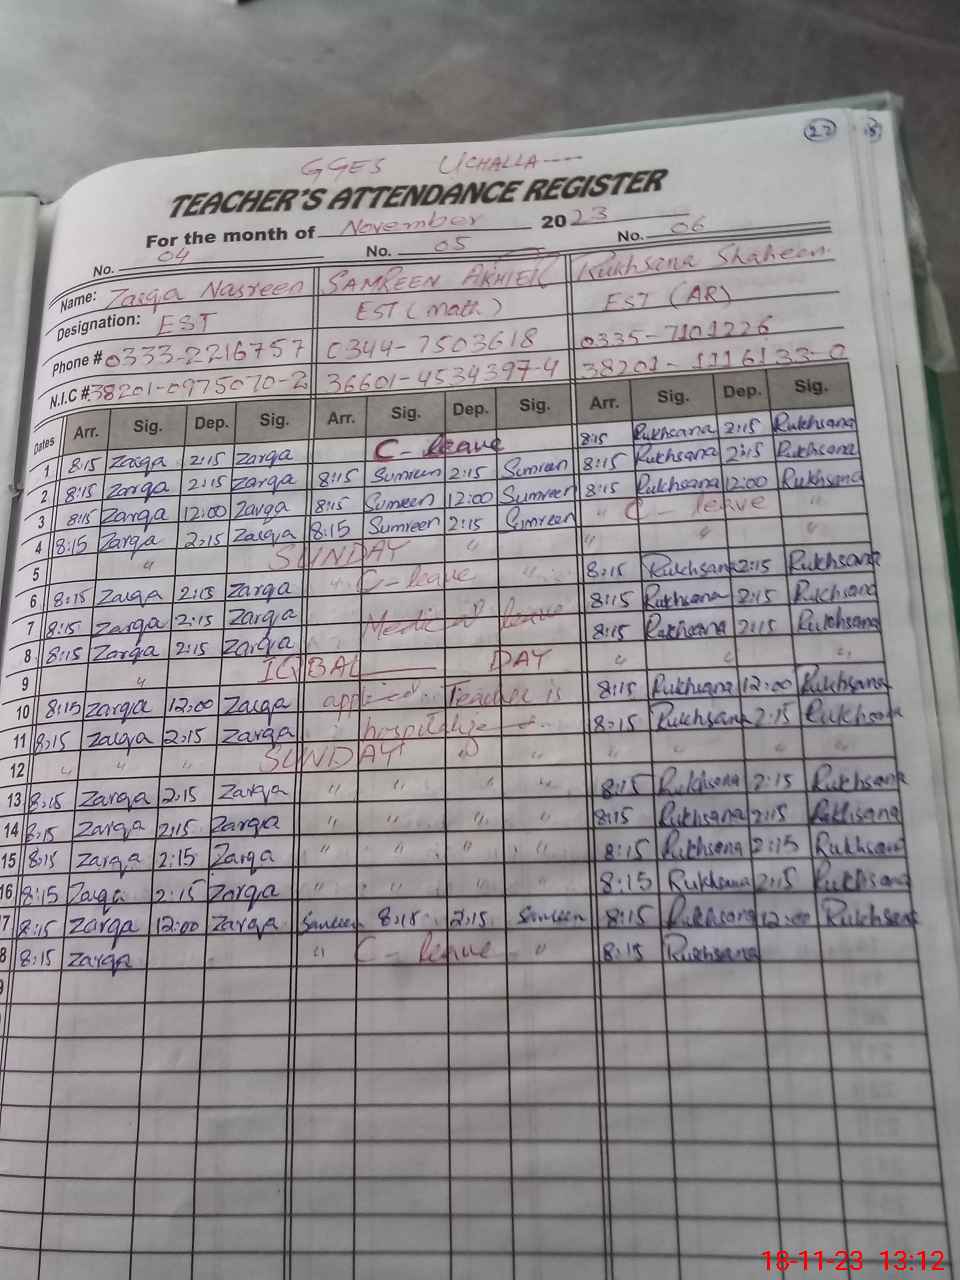 22
GGES UCHALLA----
TEACHER'S ATTENDANCE REGISTER
For the month of November 2023
No. 04 No. 05 No. 06
Name: Zarqa Nasreen SAMREEN AKHTER Rukhsana Shaheen
Designation: EST EST (math) EST (AR)
Phone # 0333-2216757 0344-7503618 0335-7101226
N.I.C # 38201-0975070-2 36601-4534397-4 38201-1116133-0
Dates Arr. Sig. Dep. Sig. Arr. Sig. Dep. Sig. Arr. Sig. Dep. Sig.
1 8:15 Zarqa 2:15 Zarqa C-leave 8:15 Rukhsana 2:15 Rukhsana
2 8:15 Zarqa 2:15 Zarqa 8:15 Sumreen 2:15 Sumreen 8:15 Rukhsana 2:15 Rukhsana
3 8:15 Zarqa 12:00 Zarqa 8:15 Sumreen 12:00 Sumreen 8:15 Rukhsana 12:00 Rukhsana
4 8:15 Zarqa 2:15 Zarqa 8:15 Sumreen 2:15 Sumreen " C-leave "
5 " SUNDAY " " " "
6 8:15 Zarqa 2:15 Zarqa " C-leave " 8:15 Rukhsana 2:15 Rukhsana
7 8:15 Zarqa 2:15 Zarqa Medical leave 8:15 Rukhsana 2:15 Rukhsana
8 8:15 Zarqa 2:15 Zarqa 8:15 Rukhsana 2:15 Rukhsana
9 " IQBAL DAY " " "
10 8:15 Zarqa 12:00 Zarqa applied Teacher is 8:15 Rukhsana 12:00 Rukhsana
11 8:15 Zarqa 2:15 Zarqa 8:15 Rukhsana 2:15 Rukhsana
12 " " " SUNDAY " " " " " "
13 8:15 Zarqa 2:15 Zarqa " " " " 8:15 Rukhsana 2:15 Rukhsana
14 8:15 Zarqa 2:15 Zarqa " " " " 8:15 Rukhsana 2:15 Rukhsana
15 8:15 Zarqa 2:15 Zarqa " " " " 8:15 Rukhsana 2:15 Rukhsana
16 8:15 Zarqa 2:15 Zarqa " " " " 8:15 Rukhsana 2:15 Rukhsana
7 8:15 Zarqa 12:00 Zarqa Samreen 8:15 2:15 Samreen 8:15 Rukhsana 12:00 Rukhsana
8 8:15 Zarqa " C-leave " 8:15 Rukhsana
18-11-23 13:12